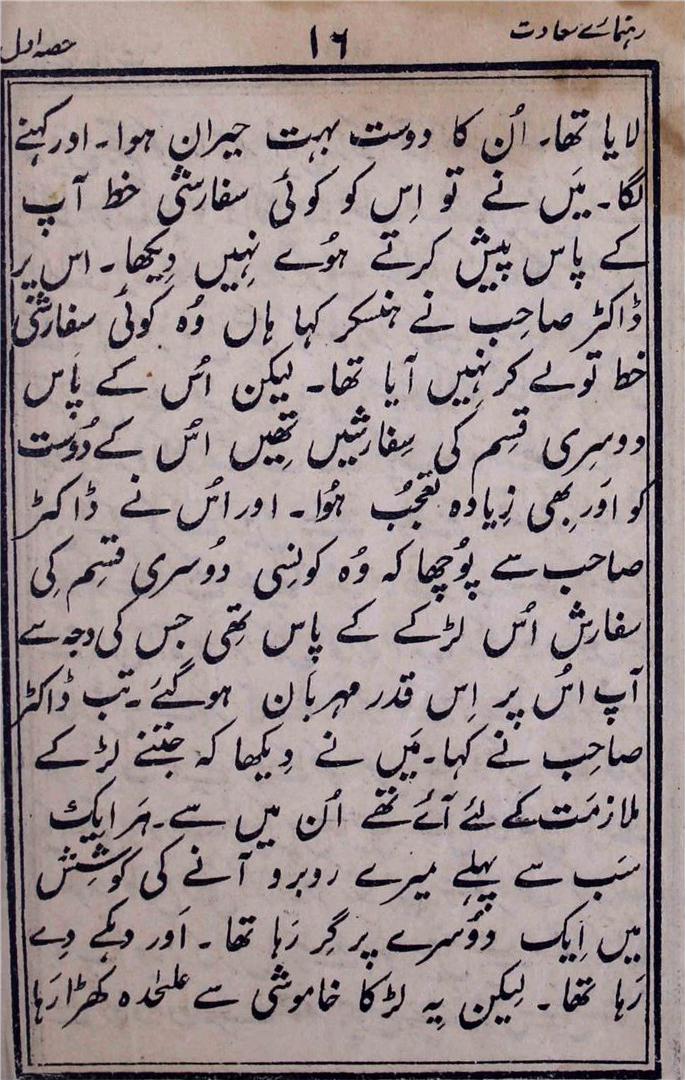 رہنمائے سعادت
۱۶
حصہ اول
لایا تھا۔ اُن کا دوست بہت حیران ہوا۔ اور کہنے
لگا۔ مَیں نے تو اِس کو کوئی سفارشی خط آپ
کے پاس پیش کرتے ہوُے نہِیں دِیکھا۔ اس پر
ڈاکٹر صاحِب نے ہنسکر کہا ہاں وُہ کوئی سفارشی
خط تو لے کر نہِیں آیا تھا۔ لیکن اُس کے پاس
دوسِری قسِم کی سِفارشیں تھِیں اُس کے دُوست
کو اَور بھی زِیادہ تعجُب ہُوا۔ اور اُس نے ڈاکٹر
صاحب سے پُوچھا کہ وُہ کونسِی دوُسری قسِم کِی
سفارش اُس لڑکے کے پاس تھِی جس کی وجہ سے
آپ اُس پر اِس قدر مہربَان ہوگئے۔ تب ڈاکٹر
صاحِب نے کہا۔ مَیں نے دِیکھا کہ جتنے لڑکے
ملازمَت کے لئے آئے تھے اُن میں سے۔ ہَر ایک
سَب سے پہلے میرے روبرو آنے کی کوشِش
میں اِیک دوُسرے پر گِر رَہا تھا۔ اَور دہکے دِے
رَہا تھا۔ لِیکن یِہ لڑکا خاموشی سے علیٰحدہ کھڑا رَہا